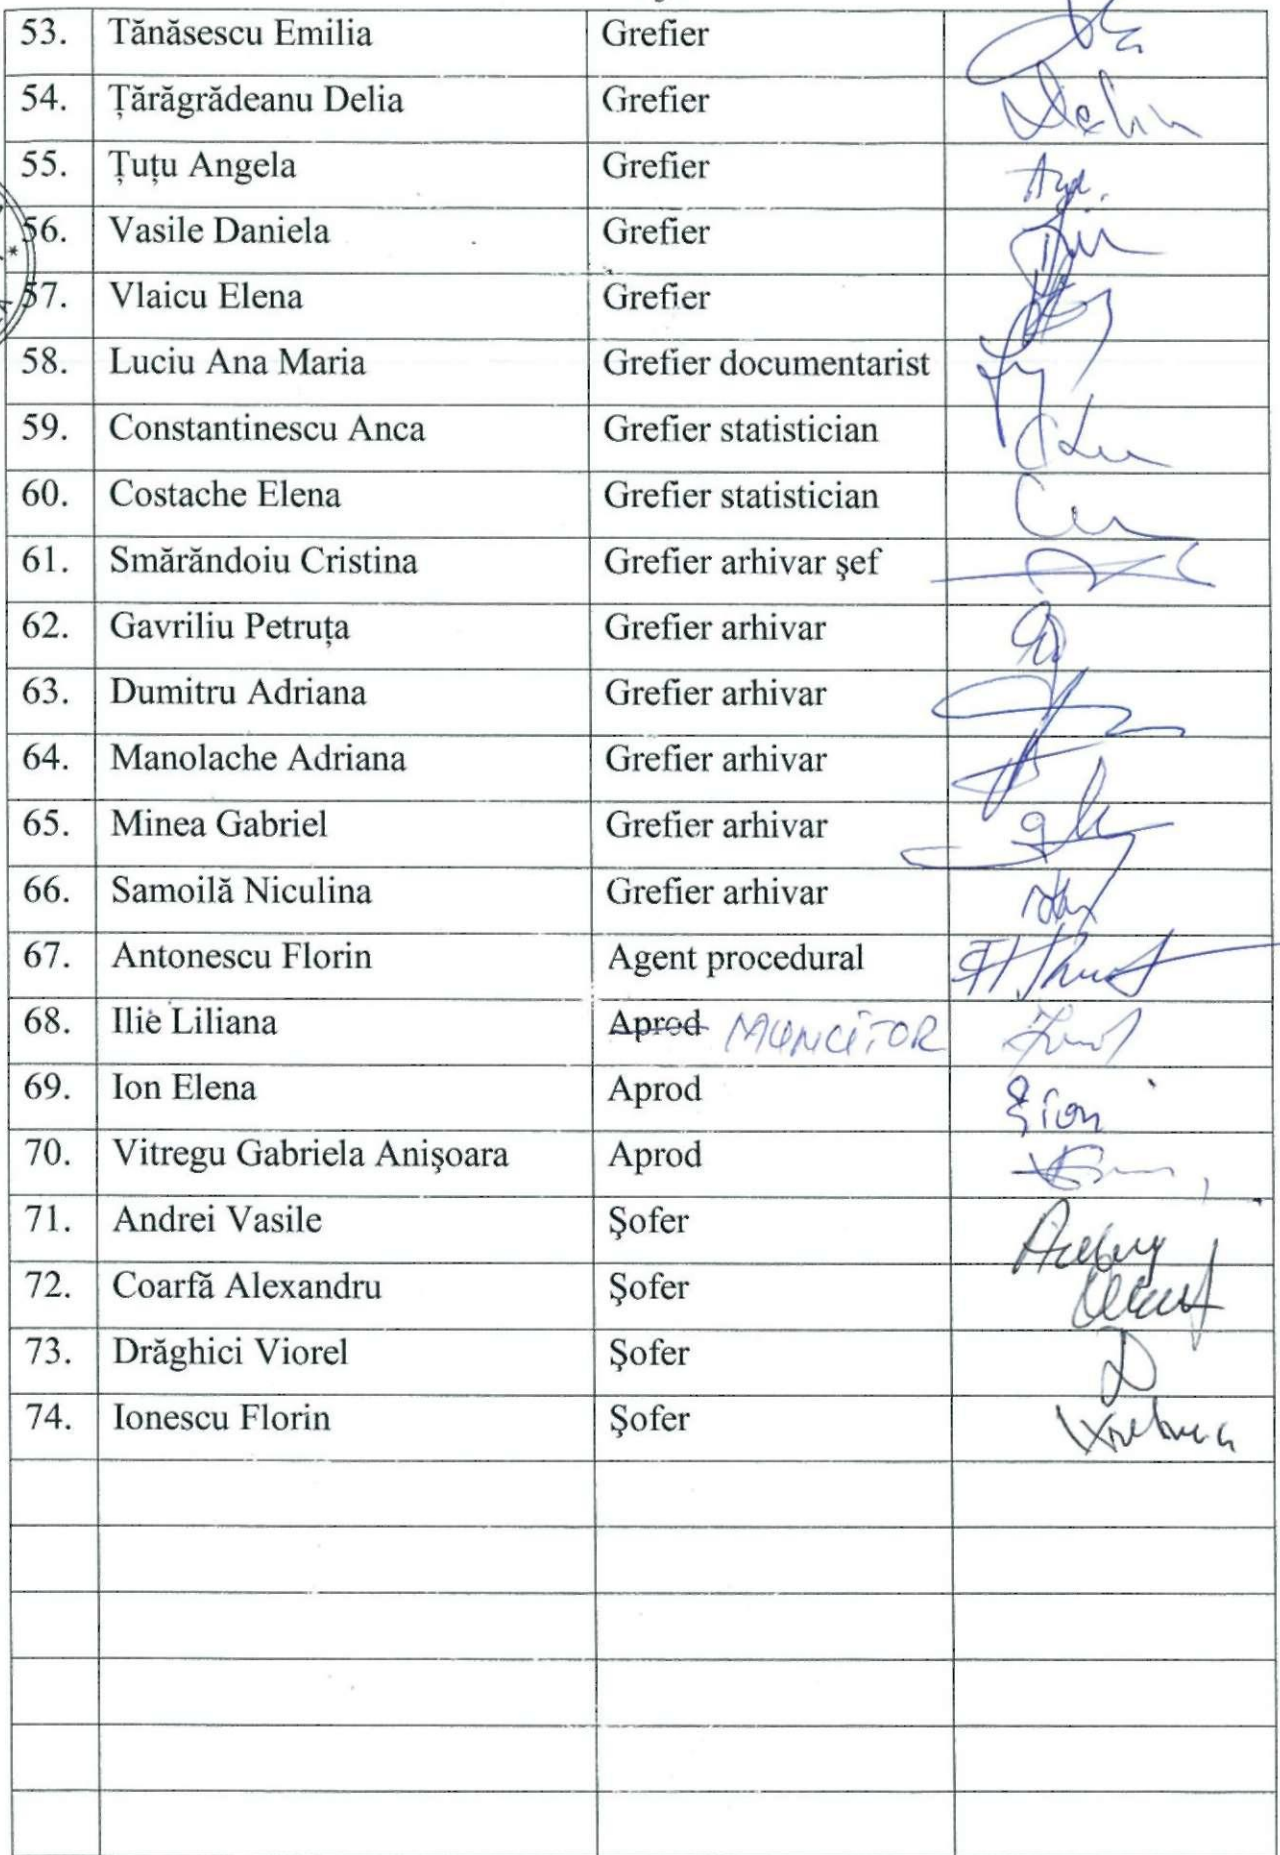 53. Tănăsescu Emilia Grefier
54. Țărăgrădeanu Delia Grefier Delia
55. Țuțu Angela Grefier
56. Vasile Daniela Grefier
57. Vlaicu Elena Grefier
58. Luciu Ana Maria Grefier documentarist
59. Constantinescu Anca Grefier statistician
60. Costache Elena Grefier statistician
61. Smărăndoiu Cristina Grefier arhivar şef
62. Gavriliu Petruța Grefier arhivar
63. Dumitru Adriana Grefier arhivar
64. Manolache Adriana Grefier arhivar
65. Minea Gabriel Grefier arhivar
66. Samoilă Niculina Grefier arhivar
67. Antonescu Florin Agent procedural
68. Ilie Liliana Aprod MUNCITOR
69. Ion Elena Aprod EIon
70. Vitregu Gabriela Anişoara Aprod
71. Andrei Vasile Şofer
72. Coarfă Alexandru Şofer
73. Drăghici Viorel Şofer D
74. Ionescu Florin Şofer